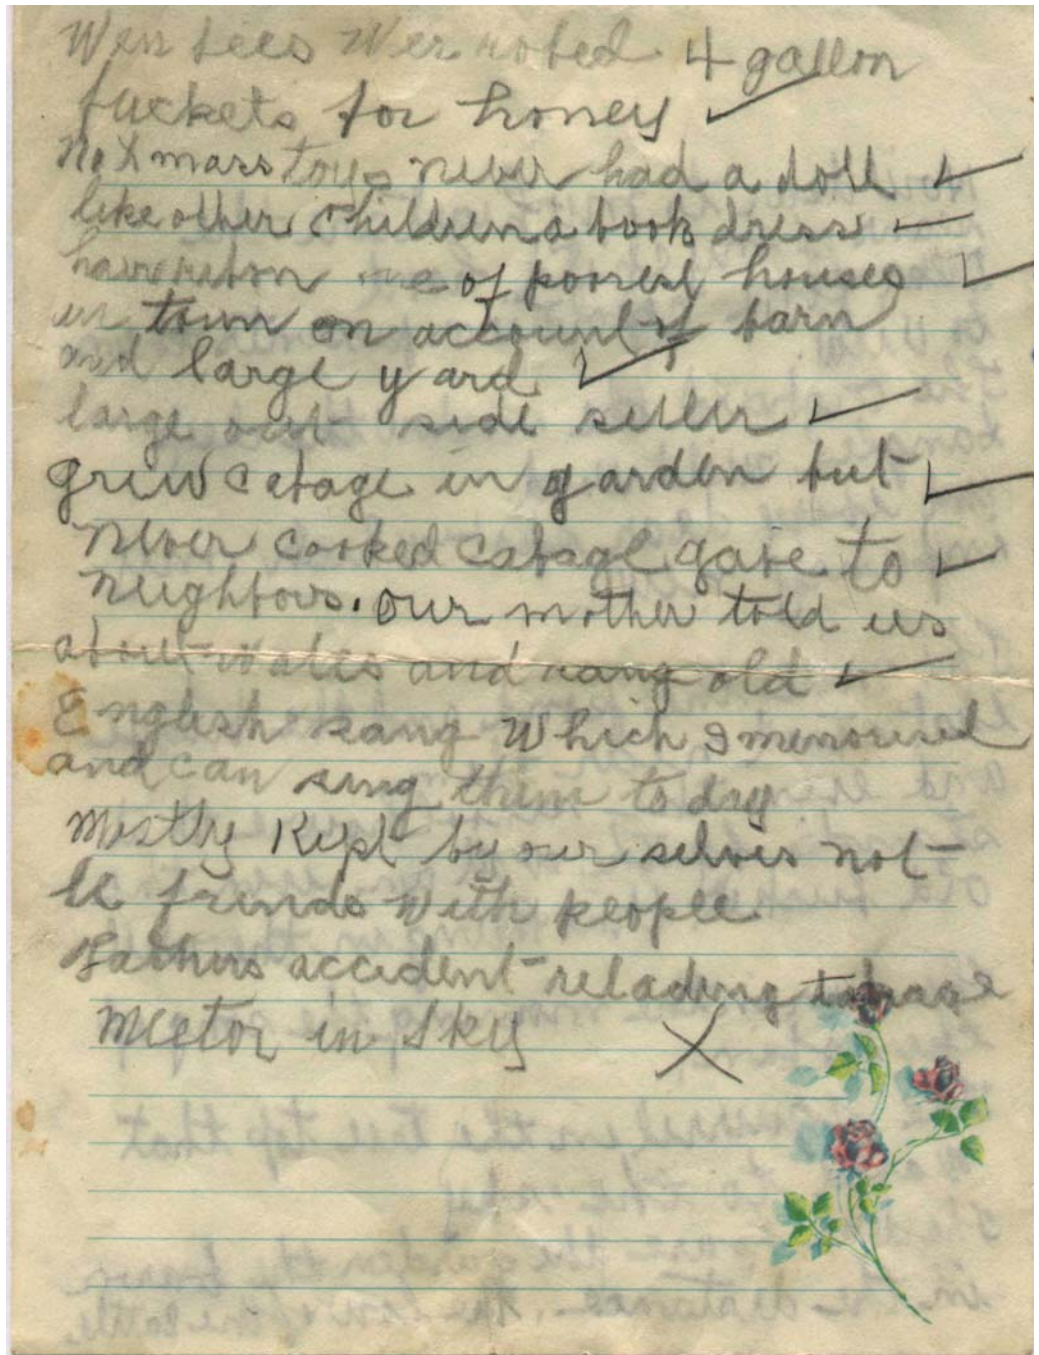 Wen bees Wer robed 4 gallon
buckets for honey
No Xmass toys never had a doll
like other children a book dress
hair ribon one of poorest houses
in town on account of barn
and large yard
large out side seller
Grew cabage in garden but
never cooked cabage gave to
neighbors. Our mother told us
about wales and sang old
English sang Which I memorised
and can sing them to day
Mostly Kept by our selves not
be frinds with people
Fathers accident relading
Meetor in sky X